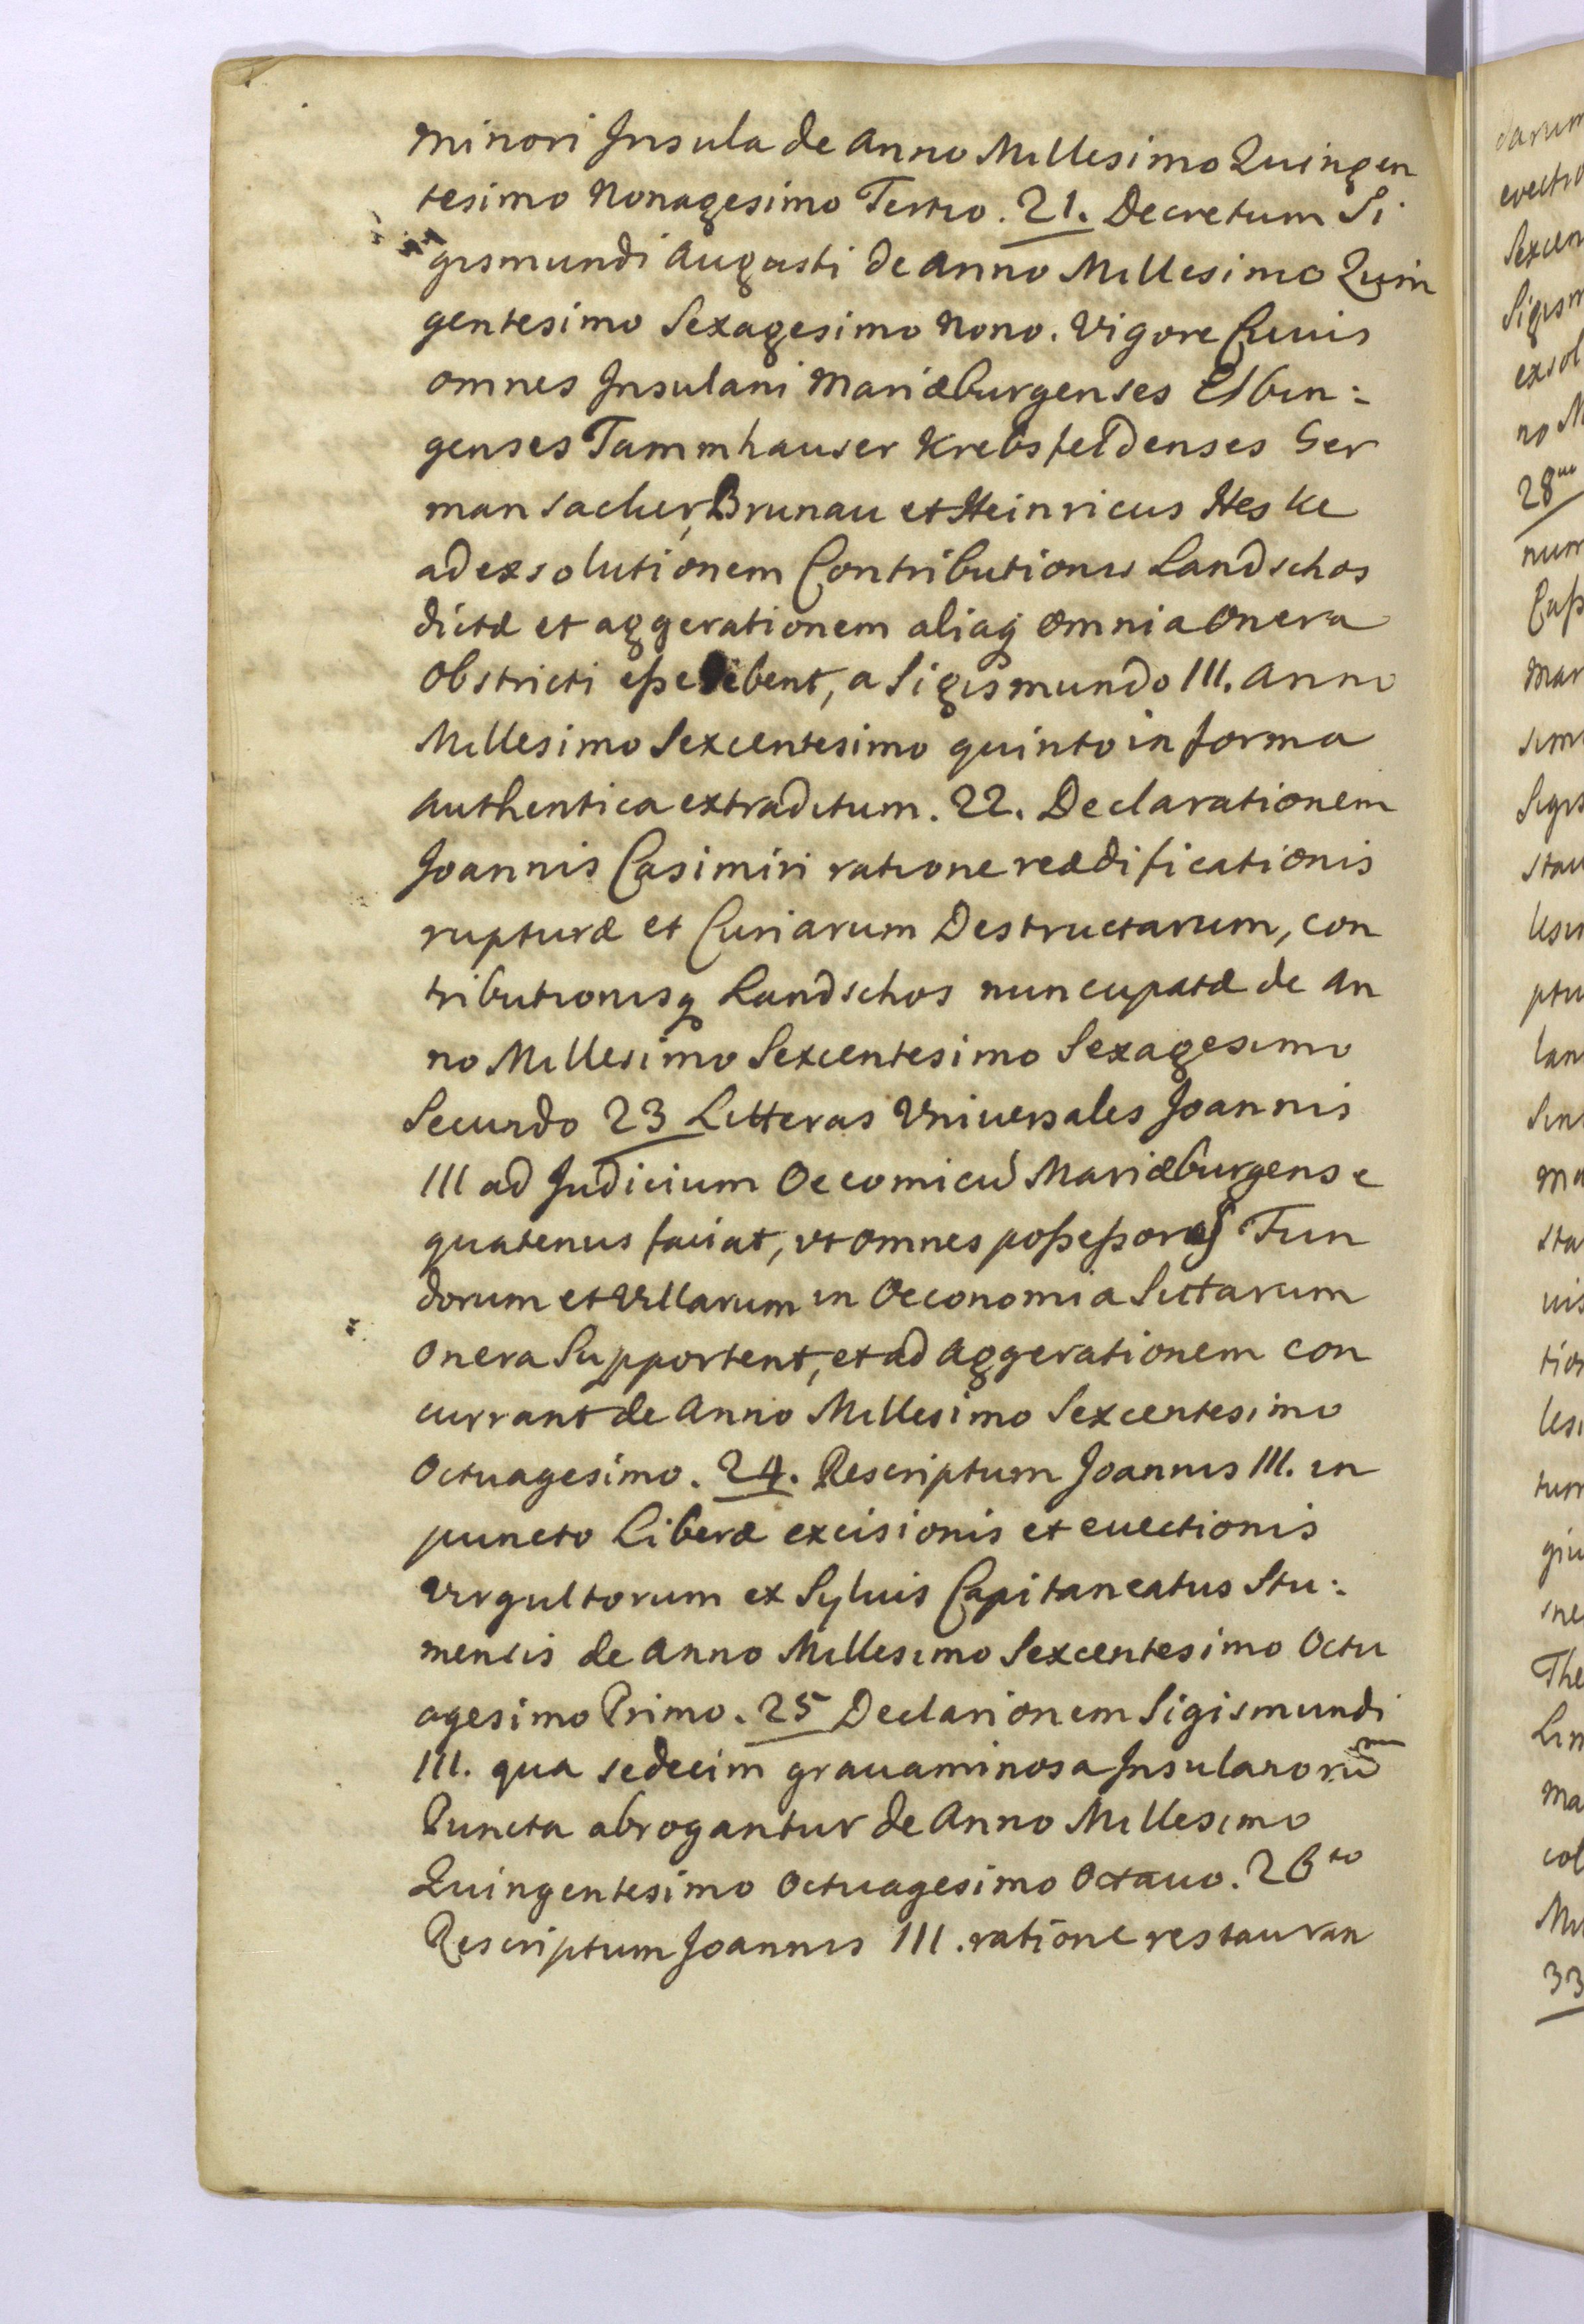 minori Insula de Anno Millesimo Quingen
tesimo Nonagesimo Tertio. 21. Decretum Si
gismundi Augusti de Anno Millesimo Quin
gentesimo Sexagesimo Nono. Vigore Cuius
omnes Insulani Mariæburgenses Elbin:
genses Tammhauser Krebsfeldenses Ser
mansacher, Brunau et Heinricus Heske
ad exsolutionem Contributionis Landschos
dictæ et aggerationem aliaq omnia onera
Obstricti eße debent, a Sigismundo III. Anno
Millesimo Sexcentesimo quinto in forma
Authentica extraditum. 22. Declarationem
Joannis Casimiri ratione reædificationis
rupturæ et Curiarum Destructarum, con
tributionisq Landschos nuncupatæ de An
no Millesimo Sexcentesimo Sexagesimo
Secundo 23 Litteras Vniuersales Joannis
III ad Judicium Oecomicū Mariæburgense
quatenus faciat, vt omnes poßeßores Fun
dorum et Villarum in Oeconomia Sittarum
Onera Supportent, et ad Aggerationem con
currant de Anno Millesimo Sexcentesimo
Octuagesimo. 24. Rescriptum Joannis III. in
puncto Liberæ excisionis et euectionis
Virgultorum ex Syluis Capitaneatus Stu:
mensis de Anno Millesimo Sexcentesimo Octu
agesimo Primo. 25 Declarionem Sigismundi
III. qua sedecim grauaminosa Insulanorū
Puncta abrogantur de Anno Millesimo
Quingentesimo Octuagesimo Octauo. 26to
Rescriptum Joannis III. ratione restauran